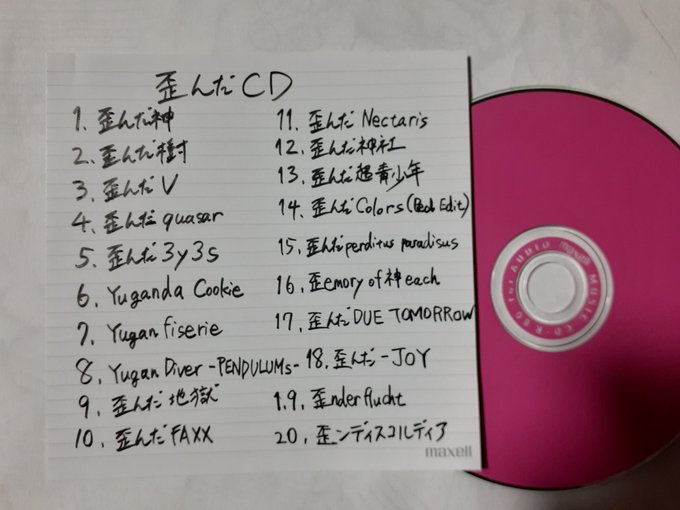 歪んだCD
1. 歪んだ神
2. 歪んだ樹
3. 歪んだV
4. 歪んだ quasar
5. 歪んだ 3y3s
6. Yuganda Cookie
7. Yugan fiserie
8. Yugan Diver -PENDULUMs-
9. 歪んだ 地獄
10. 歪んだ FAXX
11. 歪んだ Nectaris
12. 歪んだ神社
13. 歪んだ超青少年
14. 歪んだ Colors ( Edit)
15. 歪んだ perditus paradisus
16. 歪emory of 神each
17. 歪んだ DUE TOMORROW
18. 歪んだ-JOY
1.9. 歪nderflucht
20. 歪ンディスコルディア
maxell
maxell MUSIC CD-R 80 for AUDIO